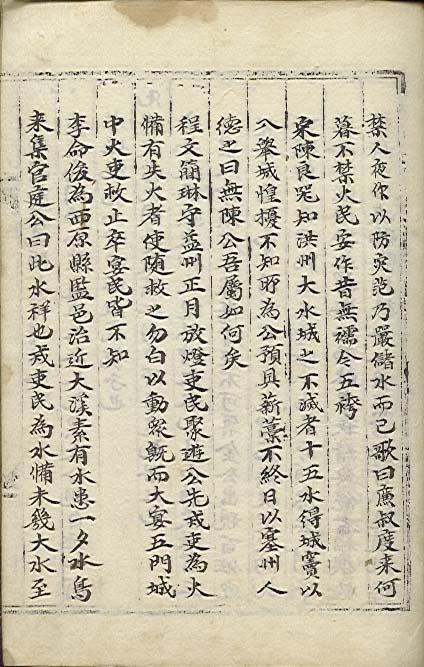 禁人夜作以防灾范乃嚴儲水而已歌曰廉叔度来何
暮不禁火民安作昔無襦今五袴
宋陳良器知洪州大水城之不滅者十五水得城竇以
入肇城惶擾不知所為公預具薪藁不終日以塞州人
德之曰無陳公吾屬如何矣
程文簡琳守益州正月放燈吏民聚遊公先戒吏為火
備有失火者使随救之勿白以動衆旣而大宴五門城
中火吏救止卒宴民皆不知
李命俊為西原縣監邑治近大溪素有水患一夕水鳥
来集官庭公曰此水祥也戒吏民為水備未幾大水至